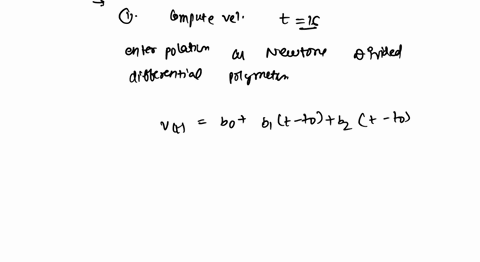 → ①. Compute vel. t = 15
enter polation as Newtons Divided
differential polymeten
v(t) = b0 + b1 (t - t0) + b2 (t - t0)